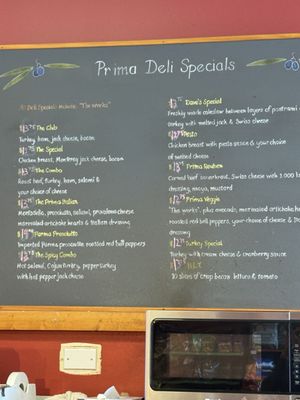 Prima Deli Specials
All Deli Specials include "The Works"
The Club
Turkey, ham, jack cheese, bacon
The Special
Chicken breast, Monterey jack cheese, bacon
The Combo
Roast beef, turkey, ham, salami &
your choice of cheese
The Prima Italian
Mortadella, prosciutto, salami, provolone cheese
marinated artichoke hearts & Italian dressing
Parma Prosciutto
Imported Parma prosciutto roasted red bell peppers
The Spicy Combo
Hot salami, Cajun turkey, pepper turkey
with hot pepper jack cheese
Dave's Special
Freshly made coleslaw between layers of pastrami
turkey with melted jack & Swiss cheese
Pesto
Chicken breast with pesto sauce & your choice
of melted cheese
Prima Reuben
Corned beef, sauerkraut, Swiss cheese with 1,000
dressing, mayo, mustard
Prima Veggie
"The works", plus avocado, marinated artichoke
roasted red bell peppers, your choice of cheese &
dressing
Turkey Special
Turkey with cream cheese & cranberry sauce
B.L.T.
10 slices of crisp bacon lettuce & tomato